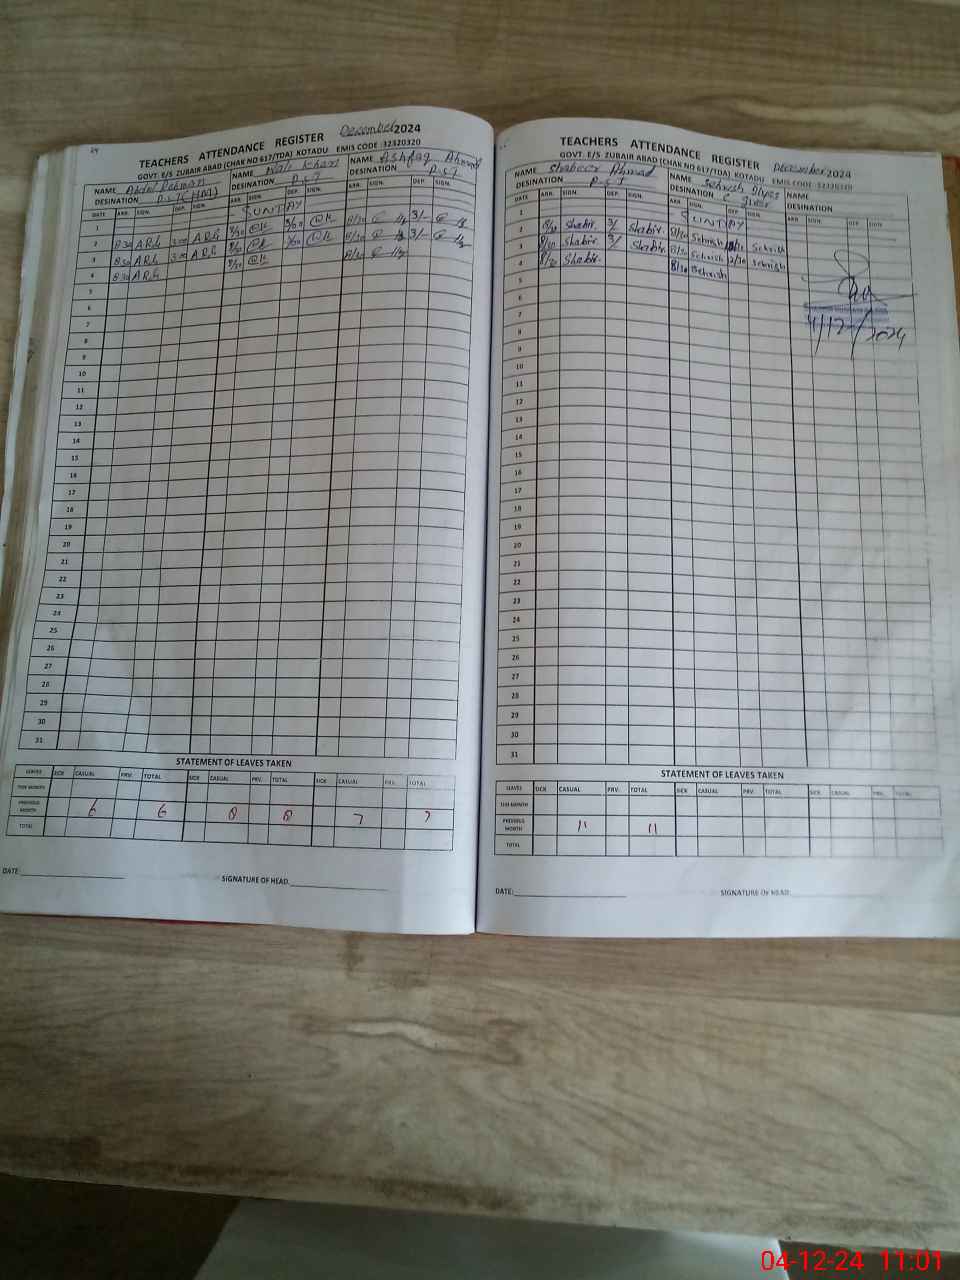 TEACHERS ATTENDANCE REGISTER December 2024
GOVT. E/S ZUBAIR ABAD (CHAK NO 617/TDA) KOTADU EMIS CODE :32320320
NAME Abdul Rehman NAME Wali Khan NAME Ashfaq Ahmad
DESINATION DESINATION P.S.T DESINATION P.S.T
DATE ARR. SIGN. DEP. SIGN. ARR. SIGN. DEP. SIGN. ARR. SIGN. DEP. SIGN.
1 SUNDAY
2 8:30 ARh 3:00 ARh 8/30 3/00 8/30 3/-
3 8:30 ARh 3:00 ARh 8/30 3/00 8/30 3/-
4 8:30 ARh 8/30 8/30
5
6
7
8
9
10
11
12
13
14
15
16
17
18
19
20
21
22
23
24
25
26
27
28
29
30
31
STATEMENT OF LEAVES TAKEN
LEAVES SICK CASUAL PRV. TOTAL SICK CASUAL PRV. TOTAL SICK CASUAL PRV. TOTAL
THIS MONTH
PREVIOUS MONTH 6 6 8 8 7 7
TOTAL
DATE: SIGNATURE OF HEAD
TEACHERS ATTENDANCE REGISTER December 2024
GOVT. E/S ZUBAIR ABAD (CHAK NO 617/TDA) KOTADU EMIS CODE :32320320
NAME Shabeer Ahmad NAME Sehrish Ilyas NAME
DESINATION P.S.T DESINATION DESINATION
DATE ARR. SIGN. DEP. SIGN. ARR. SIGN. DEP. SIGN. ARR. SIGN. DEP. SIGN.
1 SUNDAY
2 8/30 Shabir. 3/ Shabir. 8/30 Sehrish Sehrish
3 8/30 Shabir. 3/ Shabir. 8/30 Sehrish 2/30 Sehrish
4 8/30 Shabir. 8/30 Sehrish
5
6
7
4/12/2024
8
9
10
11
12
13
14
15
16
17
18
19
20
21
22
23
24
25
26
27
28
29
30
31
STATEMENT OF LEAVES TAKEN
LEAVES SICK CASUAL PRV. TOTAL SICK CASUAL PRV. TOTAL SICK CASUAL PRV. TOTAL
THIS MONTH
PREVIOUS MONTH 11 11
TOTAL
DATE: SIGNATURE OF HEAD
04-12-24 11:01